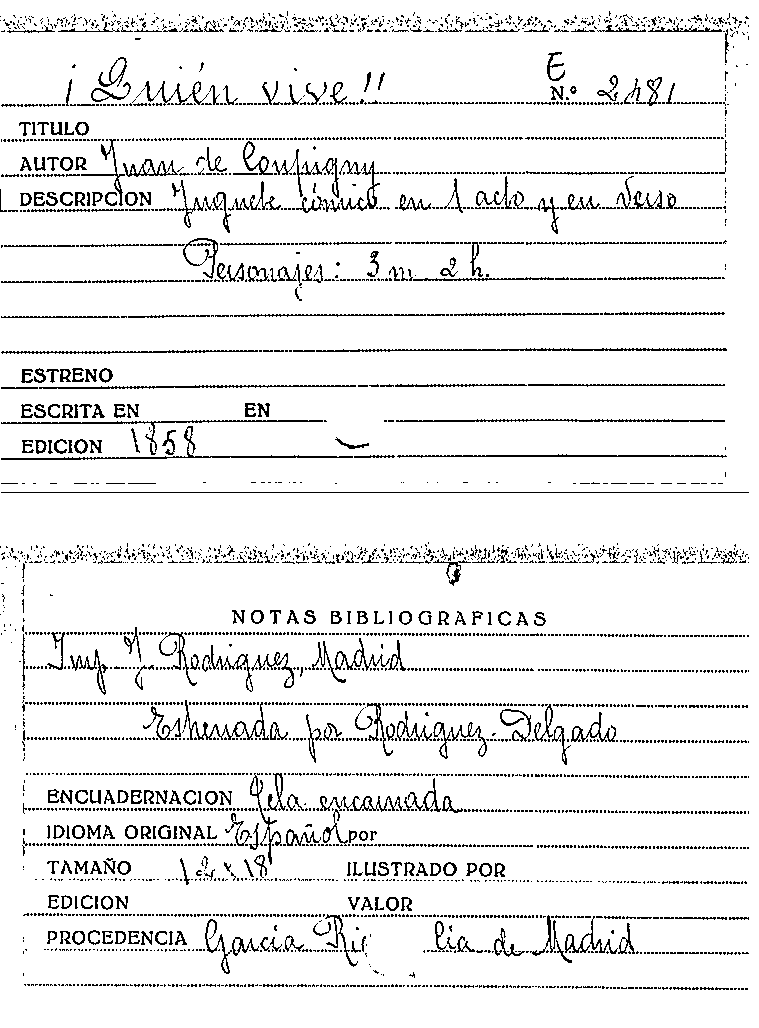 ¡Quién vive!!
E
N.º 2481
TITULO
AUTOR Juan de Coupigny
DESCRIPCION Juguete cómico en 1 acto y en verso
Personajes: 3 m 2 h.
ESTRENO
ESCRITA EN EN
EDICION 1858
NOTAS BIBLIOGRAFICAS
Imp. J. Rodriguez, Madrid
Estrenada por Rodriguez-Delgado
ENCUADERNACION Tela encarnada
IDIOMA ORIGINAL Español por
TAMAÑO 12 x 18 ILUSTRADO POR
EDICION VALOR
PROCEDENCIA Garcia Ri cia de Madrid